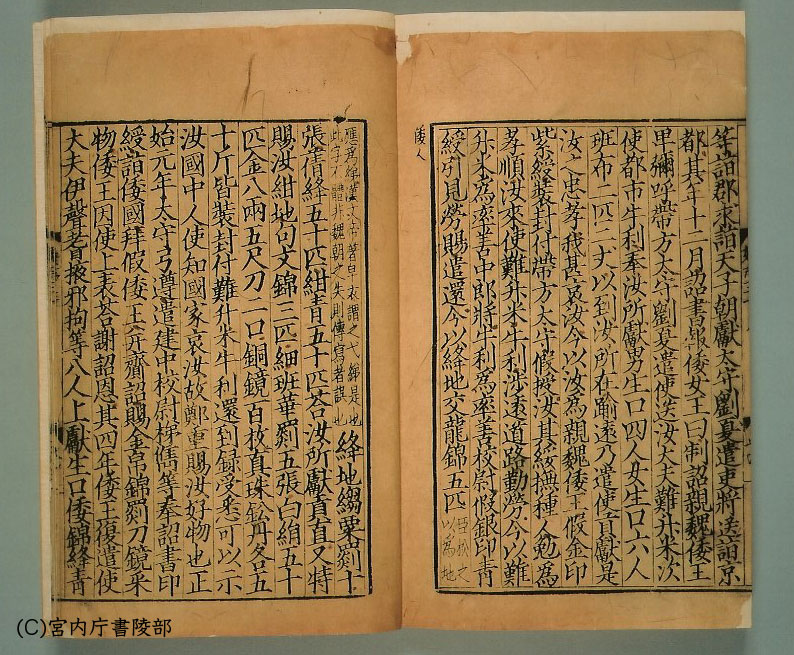 等詣郡求詣天子朝獻太守劉夏遣吏將送詣京
都其年十二月詔書報倭女王曰制詔親魏倭王
卑彌呼帶方太守劉夏遣使送汝大夫難升米次
使都市牛利奉汝所獻男生口四人女生口六人
班布二匹二丈以到汝所在踰遠乃遣使貢獻是
汝之忠孝我甚哀汝今以汝爲親魏倭王假金印
紫綬裝封付帶方太守假授汝其綏撫種人勉爲
孝順汝來使難升米牛利涉遠道路勤勞今以難
升米爲率善中郎將牛利爲率善校尉假銀印青
綬引見勞賜遣還今以絳地交龍錦五匹臣松之以爲地
倭人
應爲綈漢文帝著皁衣謂之弋綈是也此字不體非魏朝之失則傳寫者誤也絳地縐粟罽十
張蒨絳五十匹紺青五十匹荅汝所獻貢直又特
賜汝紺地句文錦三匹細班華罽五張白絹五十
匹金八兩五尺刀二口銅鏡百枚真珠鈆丹各五
十斤皆裝封付難升米牛利還到録受悉可以示
汝國中人使知國家哀汝故鄭重賜汝好物也正
始元年太守弓遵遣建中校尉梯儁等奉詔書印
綬詣倭國拜假倭王并齎詔賜金帛錦罽刀鏡采
物倭王因使上表荅謝詔恩其四年倭王復遣使
大夫伊聲耆掖邪拘等八人上獻生口倭錦絳青
(C)宮内庁書陵部